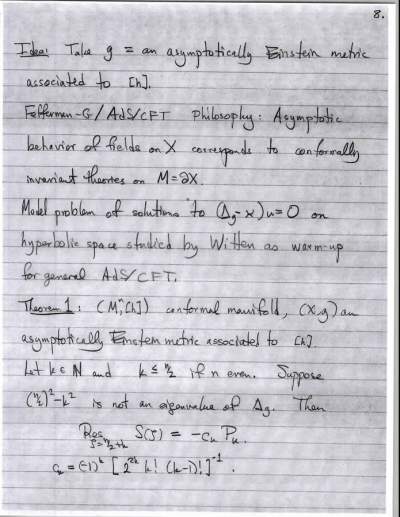 8.
Idea: Take g = an asymptotically Einstein metric
associated to [h].
Fefferman-G / AdS/CFT Philosophy: Asymptotic
behavior of fields on X corresponds to conformally
invariant theories on M=∂X.
Model problem of solutions to (Δg-x)u=0 on
hyperbolic space studied by Witten as warm-up
for general AdS/CFT.
Theorem 1: (Mⁿ,[h]) conformal manifold, (X,g) an
asymptotically Einstein metric associated to [h]
Let k∈ℕ and k ≤ n/2 if n even. Suppose
(n/2)²-k² is not an eigenvalue of Δg. Then
Res S(s) = -cₖ Pₖ.
s=n/2+k
cₖ = (-1)ᵏ [2²ᵏ k! (k-1)!]⁻¹.